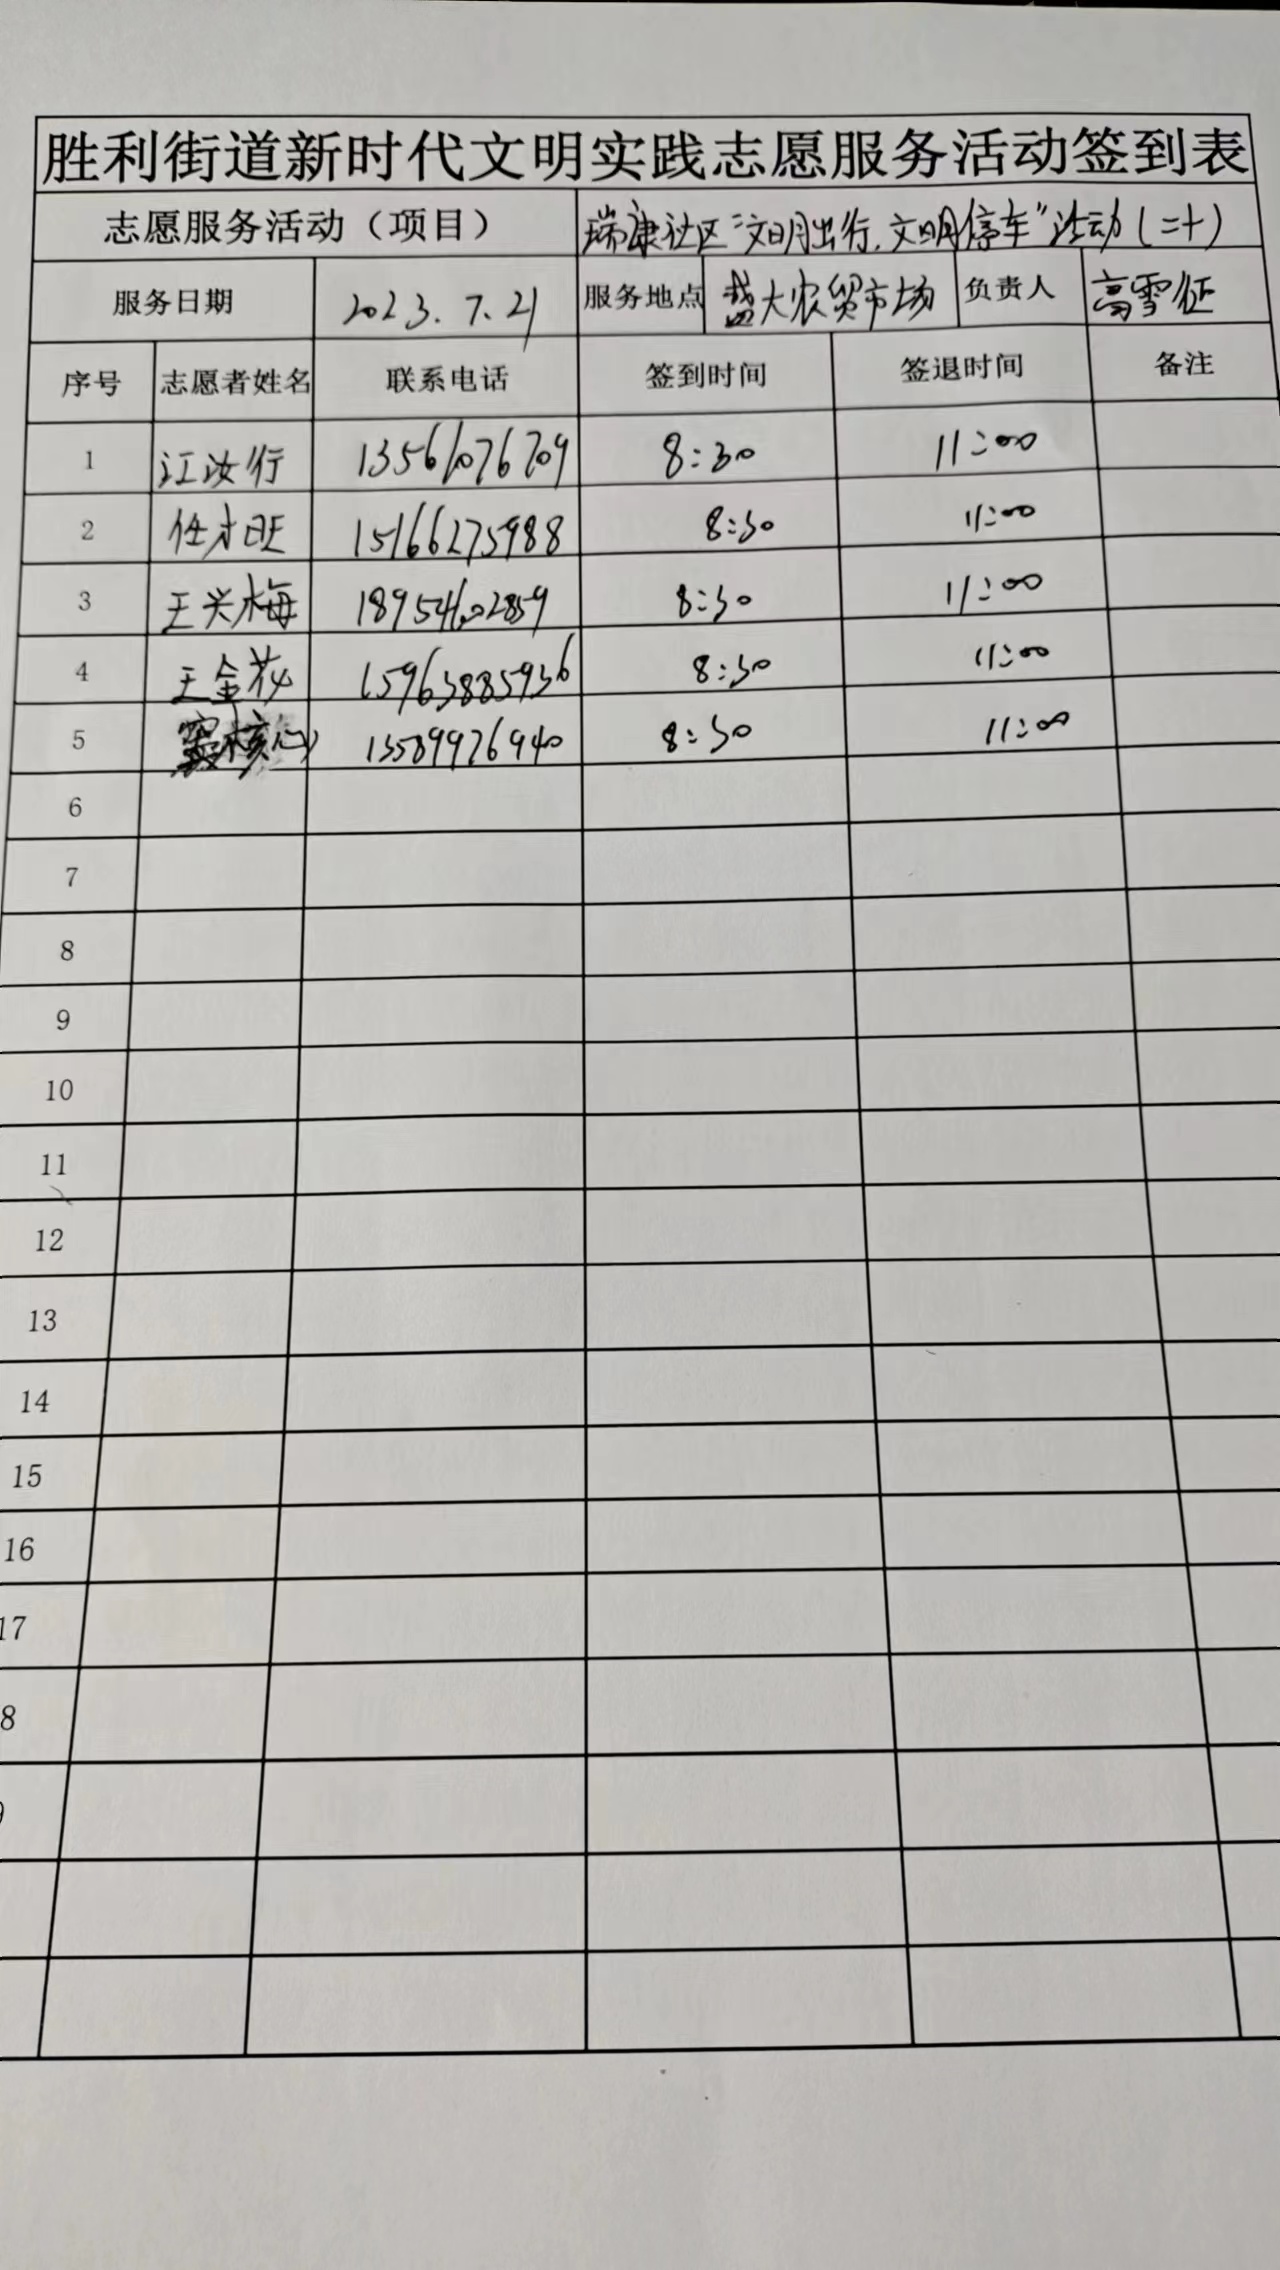 胜利街道新时代文明实践志愿服务活动签到表
志愿服务活动（项目） 瑞康社区“文明出行.文明停车”活动(二十)
服务日期 2023.7.21 服务地点 盛大农贸市场 负责人 高雪征
序号 志愿者姓名 联系电话 签到时间 签退时间 备注
1 江汝行 13561076709 8:30 11:00
2 任才旺 15166275988 8:30 11:00
3 王兴梅 18954602859 8:30 11:00
4 王金花 15963885936 8:30 11:00
5 13589976940 8:30 11:00
6
7
8
9
10
11
12
13
14
15
16
17
8